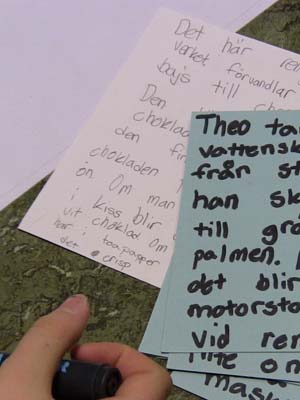 Det här ren
verket förvandlar
bajs till cho
Den
choklad
den fin
chokladen
on. Om man
i kiss blir
vit choklad om
har i toapapper
det crisp
Theo ta
vattensk
från st
han sk
till gro
palmen.
det blir
motorsto
Vid ren
inte on
mask